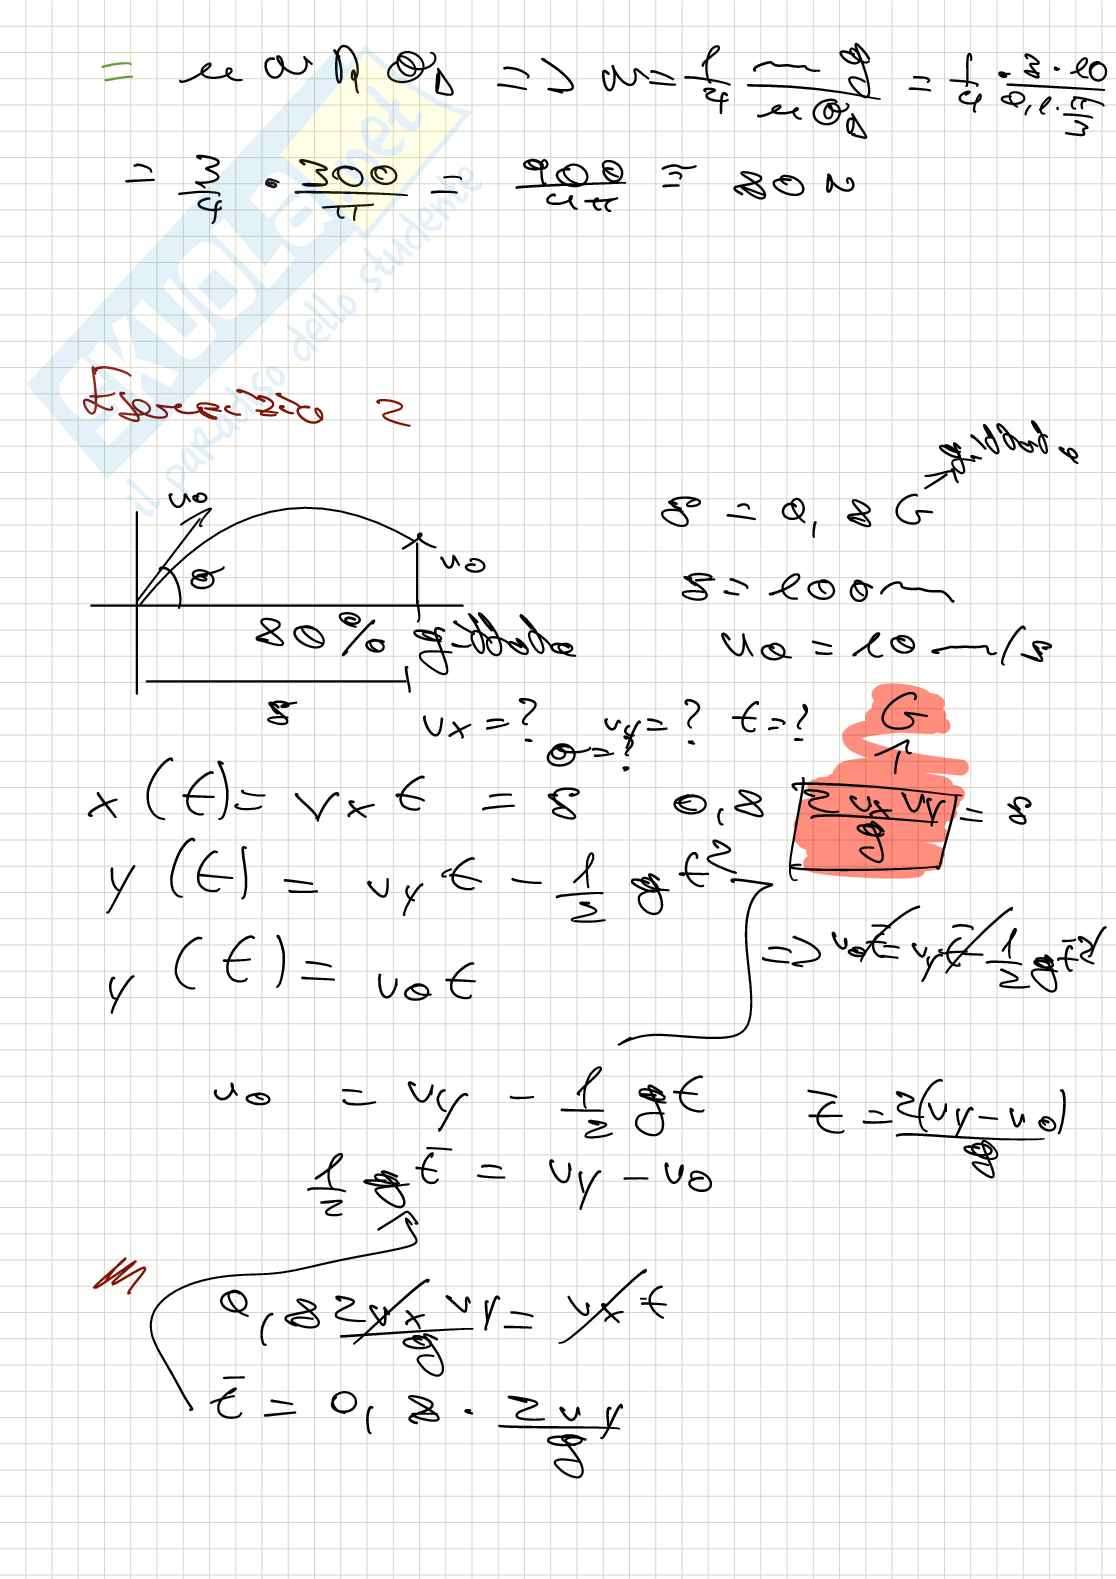 = μ N R θ₁ => N = 1/4 m g / μ θ₁ = 1/4 · 3 · 10 / 0,1 · π/3
= 3/4 · 300/π = 900/4π ≅ 80 N
SKUOLA.net
il paradiso dello studente
Esercizio 2
v0
θ
v0
80% gittata
s
gittata
s = 0,8 G
s = 100 m
v0 = 10 m/s
vx = ? vy = ? t = ?
θ = ?
G
x(t) = vx t = s 0,8 2 vx vy / g = s
y(t) = vy t - 1/2 g t²
y(t) = v0 t
=> v0 t̄ = vy t̄ - 1/2 g t̄²
v0 = vy - 1/2 g t t̄ = 2(vy - v0) / g
1/2 g t̄ = vy - v0
0,8 2 vx vy / g = vx t
t̄ = 0,8 · 2 vy / g